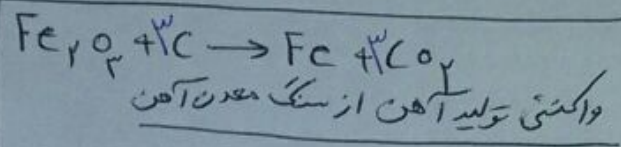 Fe۲O۳ + ۳C → Fe + ۳CO۲
واکنش تولید آهن از سنگ معدن آهن